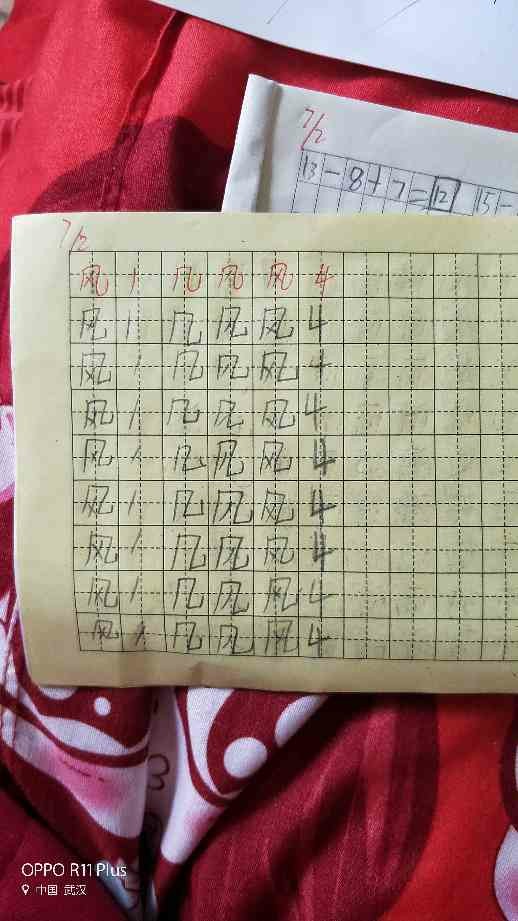 7/2
13-8+7=12 15-
7/2
风 丿 几 风 风 4
风 丿 几 风 风 4
风 丿 几 风 风 4
风 丿 几 风 风 4
风 丿 几 风 风 4
风 丿 几 风 风 4
风 丿 几 风 风 4
风 丿 几 风 风 4
风 丿 几 风 风 4
OPPO R11 Plus
中国 武汉